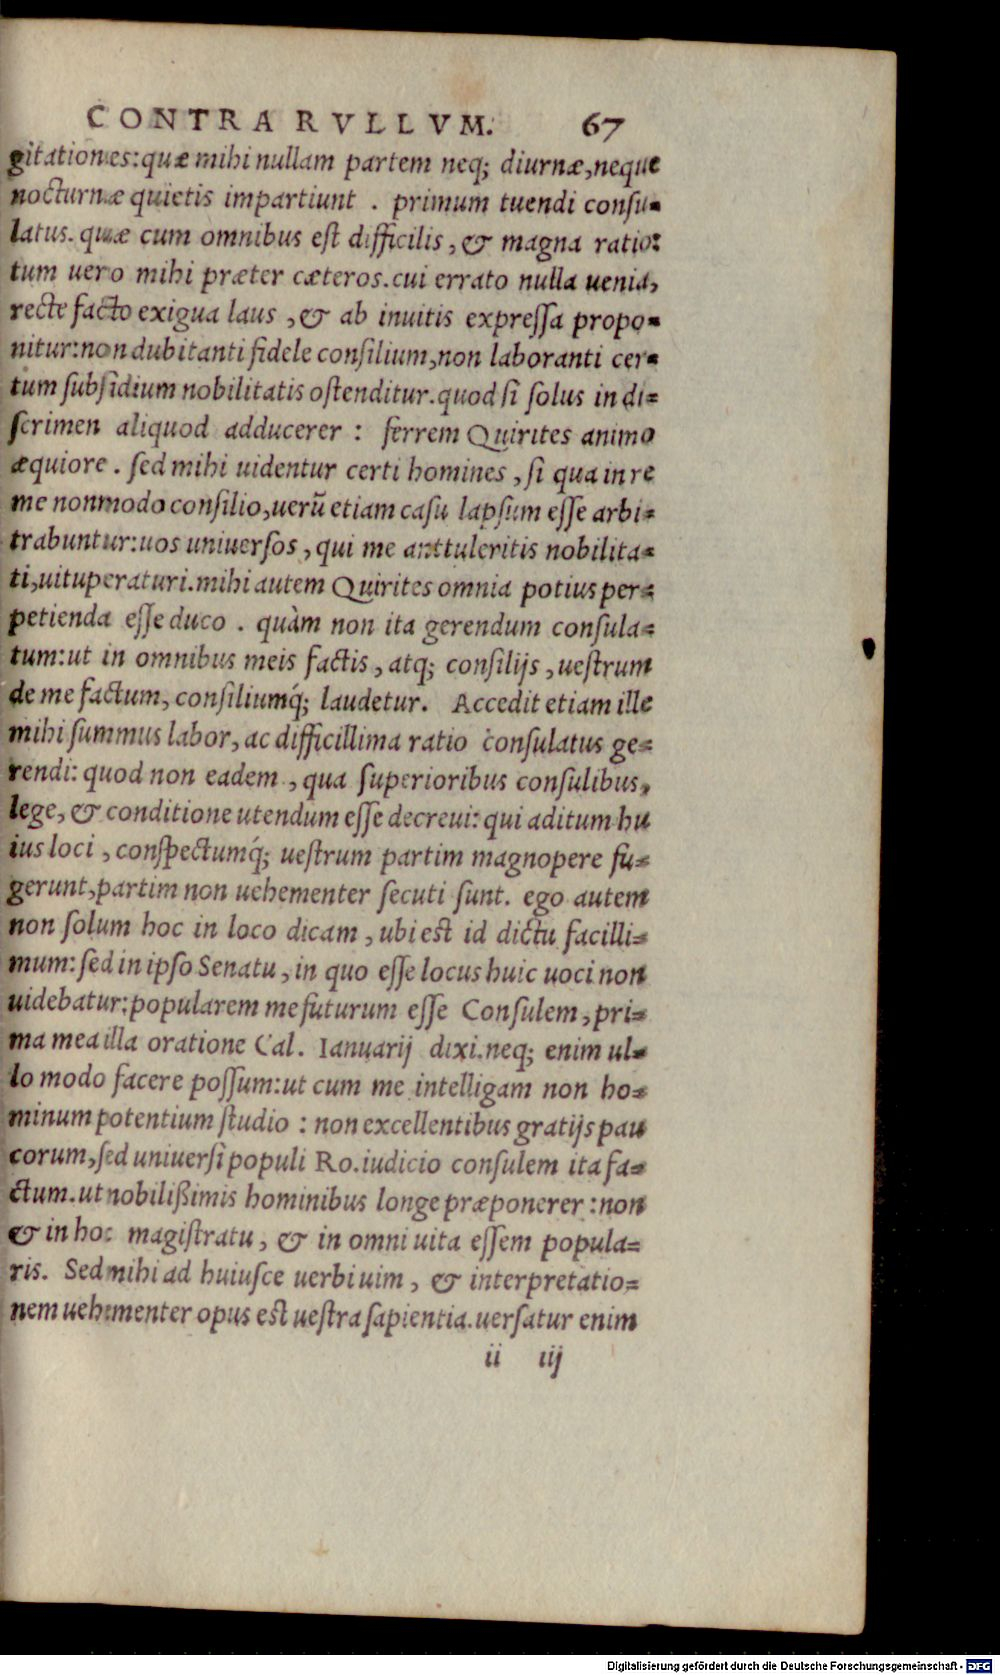 CONTRA RVLLVM. 67
gitationes: quæ mihi nullam partem neq; diurnæ, neque
nocturnæ quietis impartiunt . primum tuendi consu-
latus. quæ cum omnibus est difficilis, & magna ratio:
tum uero mihi præter cæteros. cui errato nulla uenia,
recte facto exigua laus , & ab inuitis expressa propo-
nitur: non dubitanti fidele consilium, non laboranti cer-
tum subsidium nobilitatis ostenditur. quod si solus in di-
scrimen aliquod adducerer : ferrem Quirites animo
æquiore . sed mihi uidentur certi homines , si qua in re
me nonmodo consilio, uerũ etiam casu lapsum esse arbi-
trabuntur: uos uniuersos , qui me anttuleritis nobilita-
ti, uituperaturi. mihi autem Quirites omnia potius per-
petienda esse duco . quàm non ita gerendum consula-
tum: ut in omnibus meis factis , atq; consilijs , uestrum
de me factum, consiliumq́; laudetur. Accedit etiam ille
mihi summus labor, ac difficillima ratio consulatus ge-
rendi: quod non eadem , qua superioribus consulibus,
lege, & conditione utendum esse decreui: qui aditum hu
ius loci , conspectumq́; uestrum partim magnopere fu-
gerunt, partim non uehementer secuti sunt. ego autem
non solum hoc in loco dicam , ubi est id dictu facilli-
mum: sed in ipso Senatu, in quo esse locus huic uoci non
uidebatur: popularem me futurum esse Consulem, pri-
ma mea illa oratione Cal. Ianuarij dixi. neq; enim ul-
lo modo facere possum: ut cum me intelligam non ho-
minum potentium studio : non excellentibus gratijs pau
corum, sed uniuersi populi Ro. iudicio consulem ita fa-
ctum. ut nobilißimis hominibus longe præponerer : non
& in hoc magistratu, & in omni uita essem popula-
ris. Sed mihi ad huiusce uerbi uim , & interpretatio-
nem uehementer opus est uestra sapientia. uersatur enim
ii iij
Digitalisierung gefördert durch die Deutsche Forschungsgemeinschaft - DFG